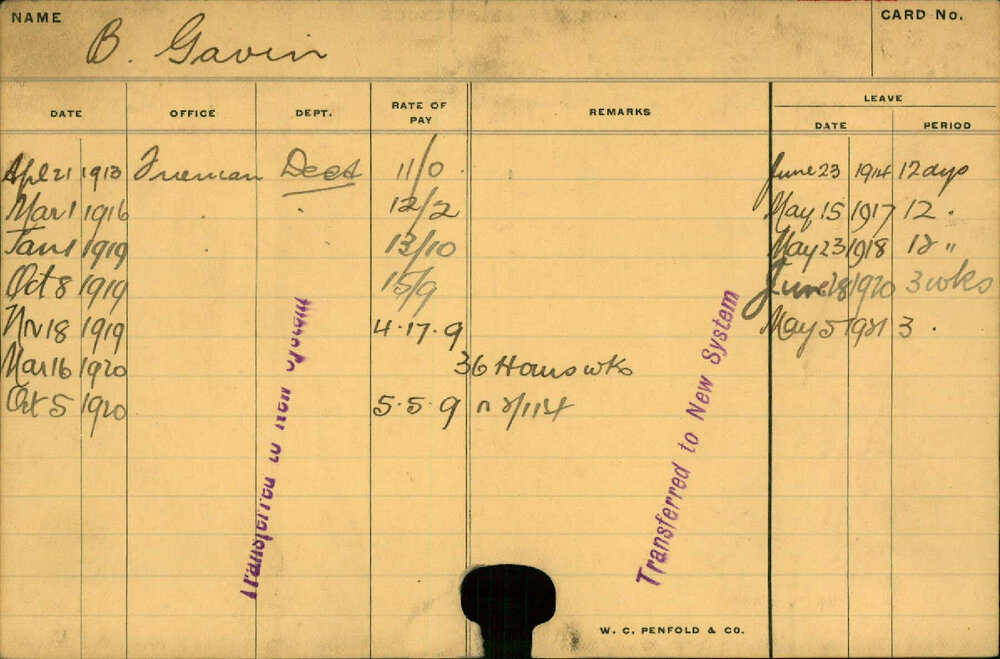 NAME
CARD No.
B. Gavin
DATE OFFICE DEPT. RATE OF PAY REMARKS LEAVE
DATE PERIOD
Apl 21 1913 Fireman 11/0 June 23 1914 12 days
Mar 1 1916 12/2 May 15 1917 12 "
Jan 1 1919 13/10 May 23 1918 12 "
Oct 8 1919 15/9 June 28 1920 3 wks
Nv 18 1919 4.17.9 May 5 1921 3 "
Mar 16 1920 36 Hours wks
Oct 5 1920 5.5.9
Transferred to New System
Transferred to New System
W. C. PENFOLD & CO.